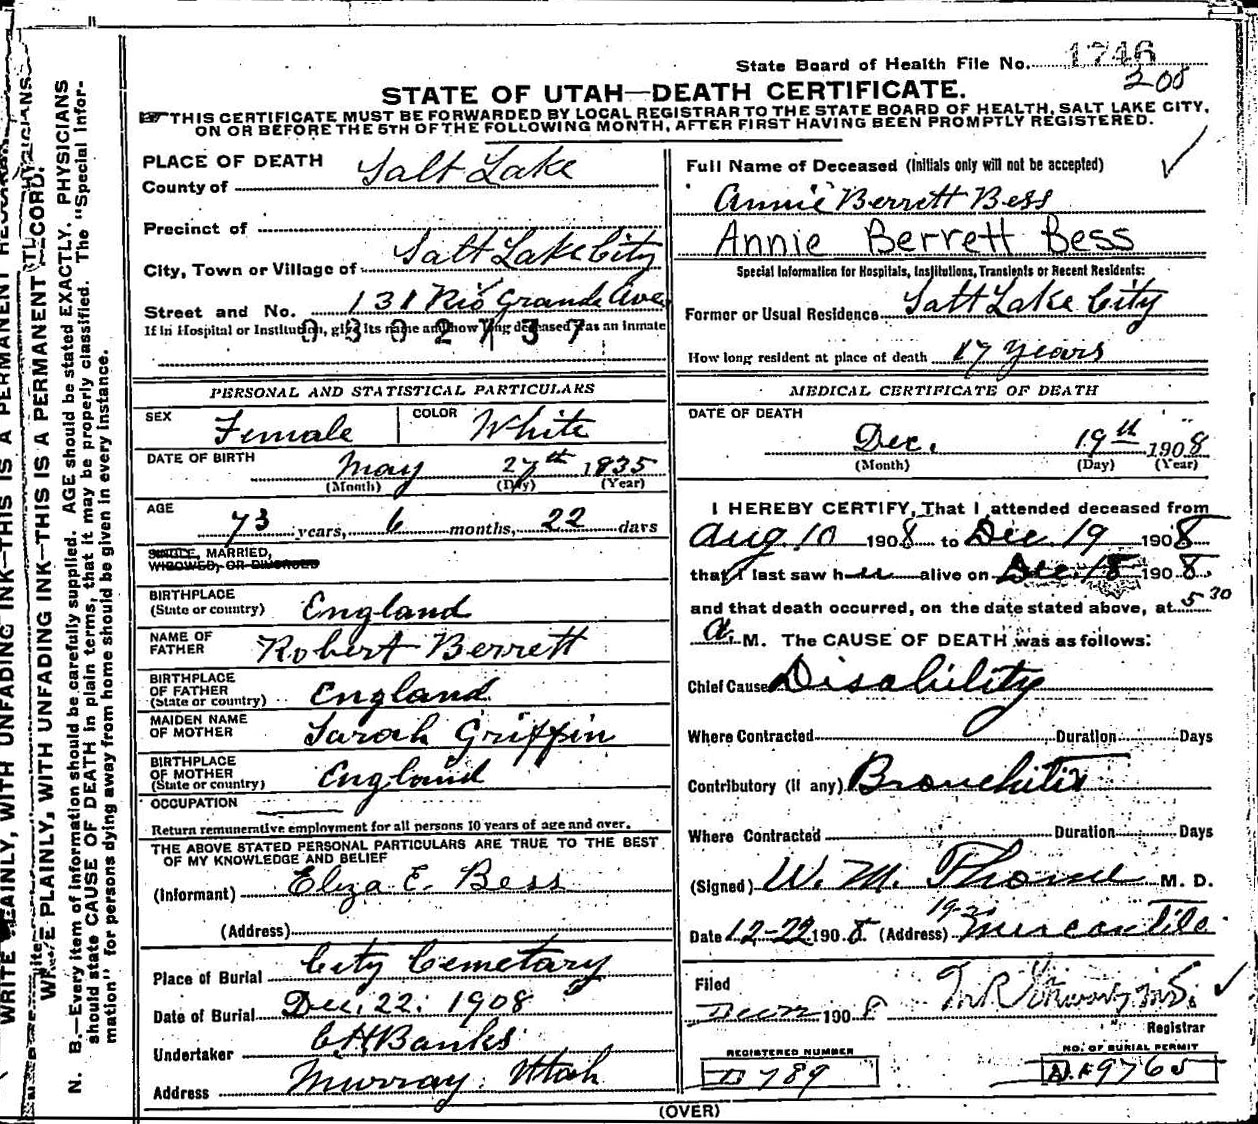 State Board of Health File No. 1746
200
STATE OF UTAH—DEATH CERTIFICATE.
THIS CERTIFICATE MUST BE FORWARDED BY LOCAL REGISTRAR TO THE STATE BOARD OF HEALTH, SALT LAKE CITY,
ON OR BEFORE THE 5TH OF THE FOLLOWING MONTH, AFTER FIRST HAVING BEEN PROMPTLY REGISTERED.
PLACE OF DEATH
County of Salt Lake
Precinct of
City, Town or Village of Salt Lake City
Street and No. 131 Rio Grande Ave
If in Hospital or Institution, give its name and how long deceased was an inmate
0302737
PERSONAL AND STATISTICAL PARTICULARS
SEX Female COLOR White
DATE OF BIRTH May 27th 1835
(Month) (Day) (Year)
AGE 73 years, 6 months, 22 days
SINGLE, MARRIED,
WIDOWED, OR DIVORCED
BIRTHPLACE
(State or country) England
NAME OF
FATHER Robert Berrett
BIRTHPLACE
OF FATHER
(State or country) England
MAIDEN NAME
OF MOTHER Sarah Griffin
BIRTHPLACE
OF MOTHER
(State or country) England
OCCUPATION
Return remunerative employment for all persons 10 years of age and over.
THE ABOVE STATED PERSONAL PARTICULARS ARE TRUE TO THE BEST
OF MY KNOWLEDGE AND BELIEF
(Informant) Eliza E. Bess
(Address)
Place of Burial City Cemetary
Date of Burial Dec. 22. 1908
Undertaker C H Banks
Address Murray Utah
Full Name of Deceased (Initials only will not be accepted)
Annie Berrett Bess
Annie Berrett Bess
Special Information for Hospitals, Institutions, Transients or Recent Residents:
Former or Usual Residence Salt Lake City
How long resident at place of death 17 years
MEDICAL CERTIFICATE OF DEATH
DATE OF DEATH
Dec. 19th 1908
(Month) (Day) (Year)
I HEREBY CERTIFY, That I attended deceased from
Aug. 10 1908 to Dec. 19 1908
that I last saw her alive on Dec. 18 1908.
and that death occurred, on the date stated above, at 5 30
a. M. The CAUSE OF DEATH was as follows:
Chief Cause Disability
Where Contracted Duration Days
Contributory (if any) Bronchitis
Where Contracted Duration Days
(Signed) W. M. Thorne M. D.
Date 12-22 1908. (Address) Mercantile
Filed
1908
Registrar
REGISTERED NUMBER
D 789
NO. OF BURIAL PERMIT
9765
(OVER)
WRITE PLAINLY, WITH UNFADING INK—THIS IS A PERMANENT RECORD.
WRITE PLAINLY, WITH UNFADING INK—THIS IS A PERMANENT RECORD.
N. B.—Every item of information should be carefully supplied. AGE should be stated EXACTLY. PHYSICIANS
should state CAUSE OF DEATH in plain terms, that it may be properly classified. The "Special Infor-
mation" for persons dying away from home should be given in every instance.